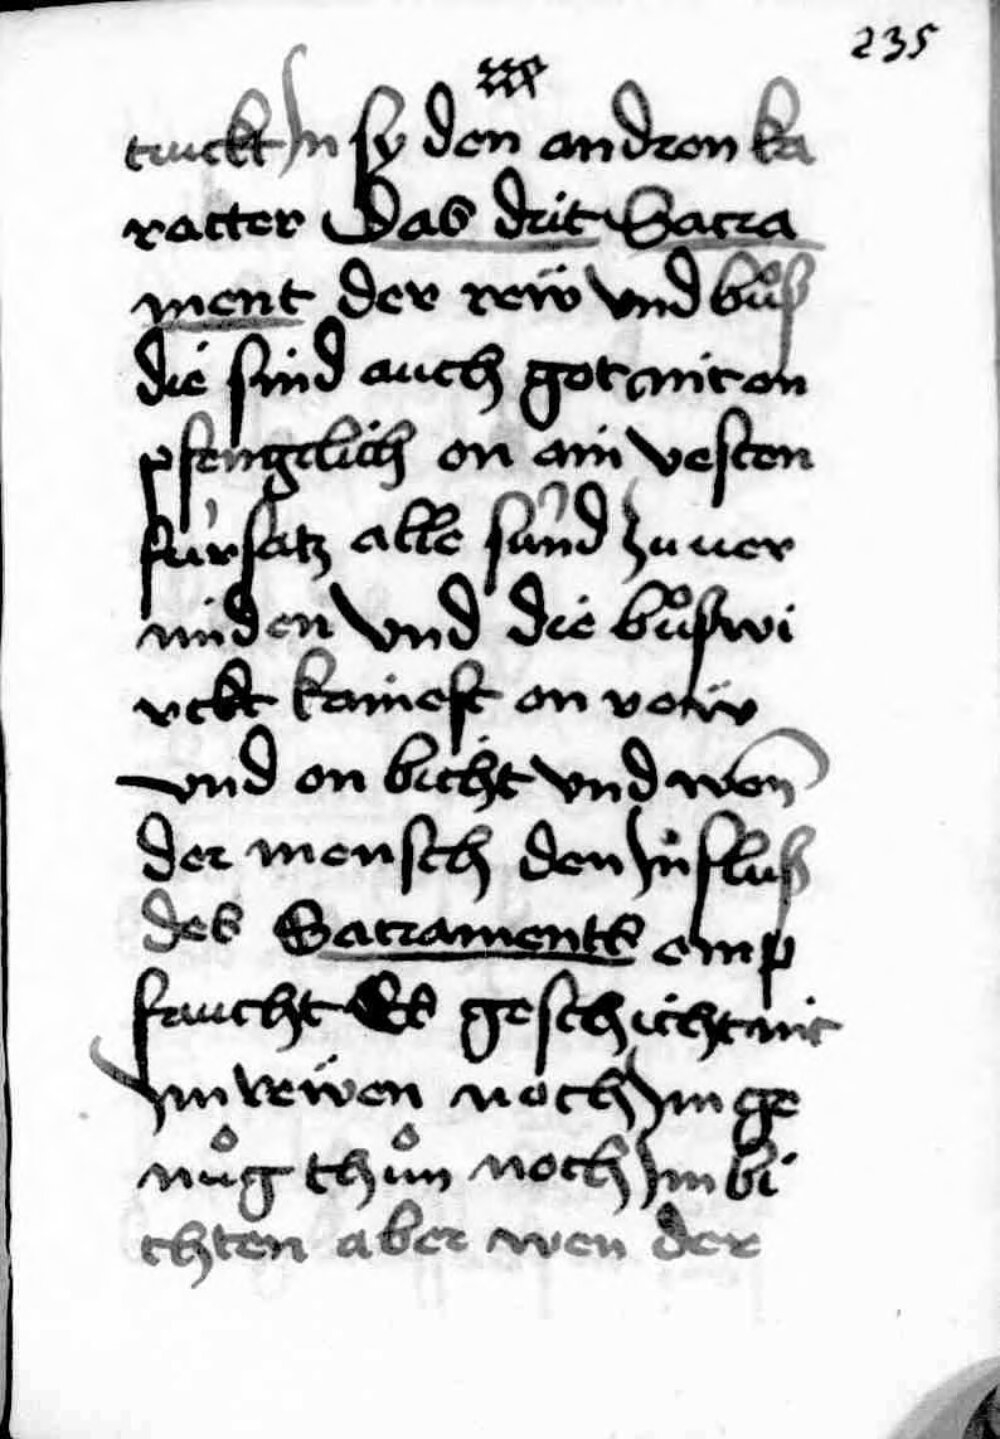 235
xxx
truckt Jn sy den andren ka
racter Das drit Sacra
ment der rew vnd bůß
die sind auch got nit on
pfenglich on ain vesten
fürsatz alle sünd zu uer
miden Vnd die bůß wi
rckt kainest on rew
vnd on bicht vnd wen
der mensch den Jnfluß
des Sacraments emp
faucht Es geschicht nit
Jm rewen noch Jm ge
nůg thůn noch Jm bi
chten aber wen der